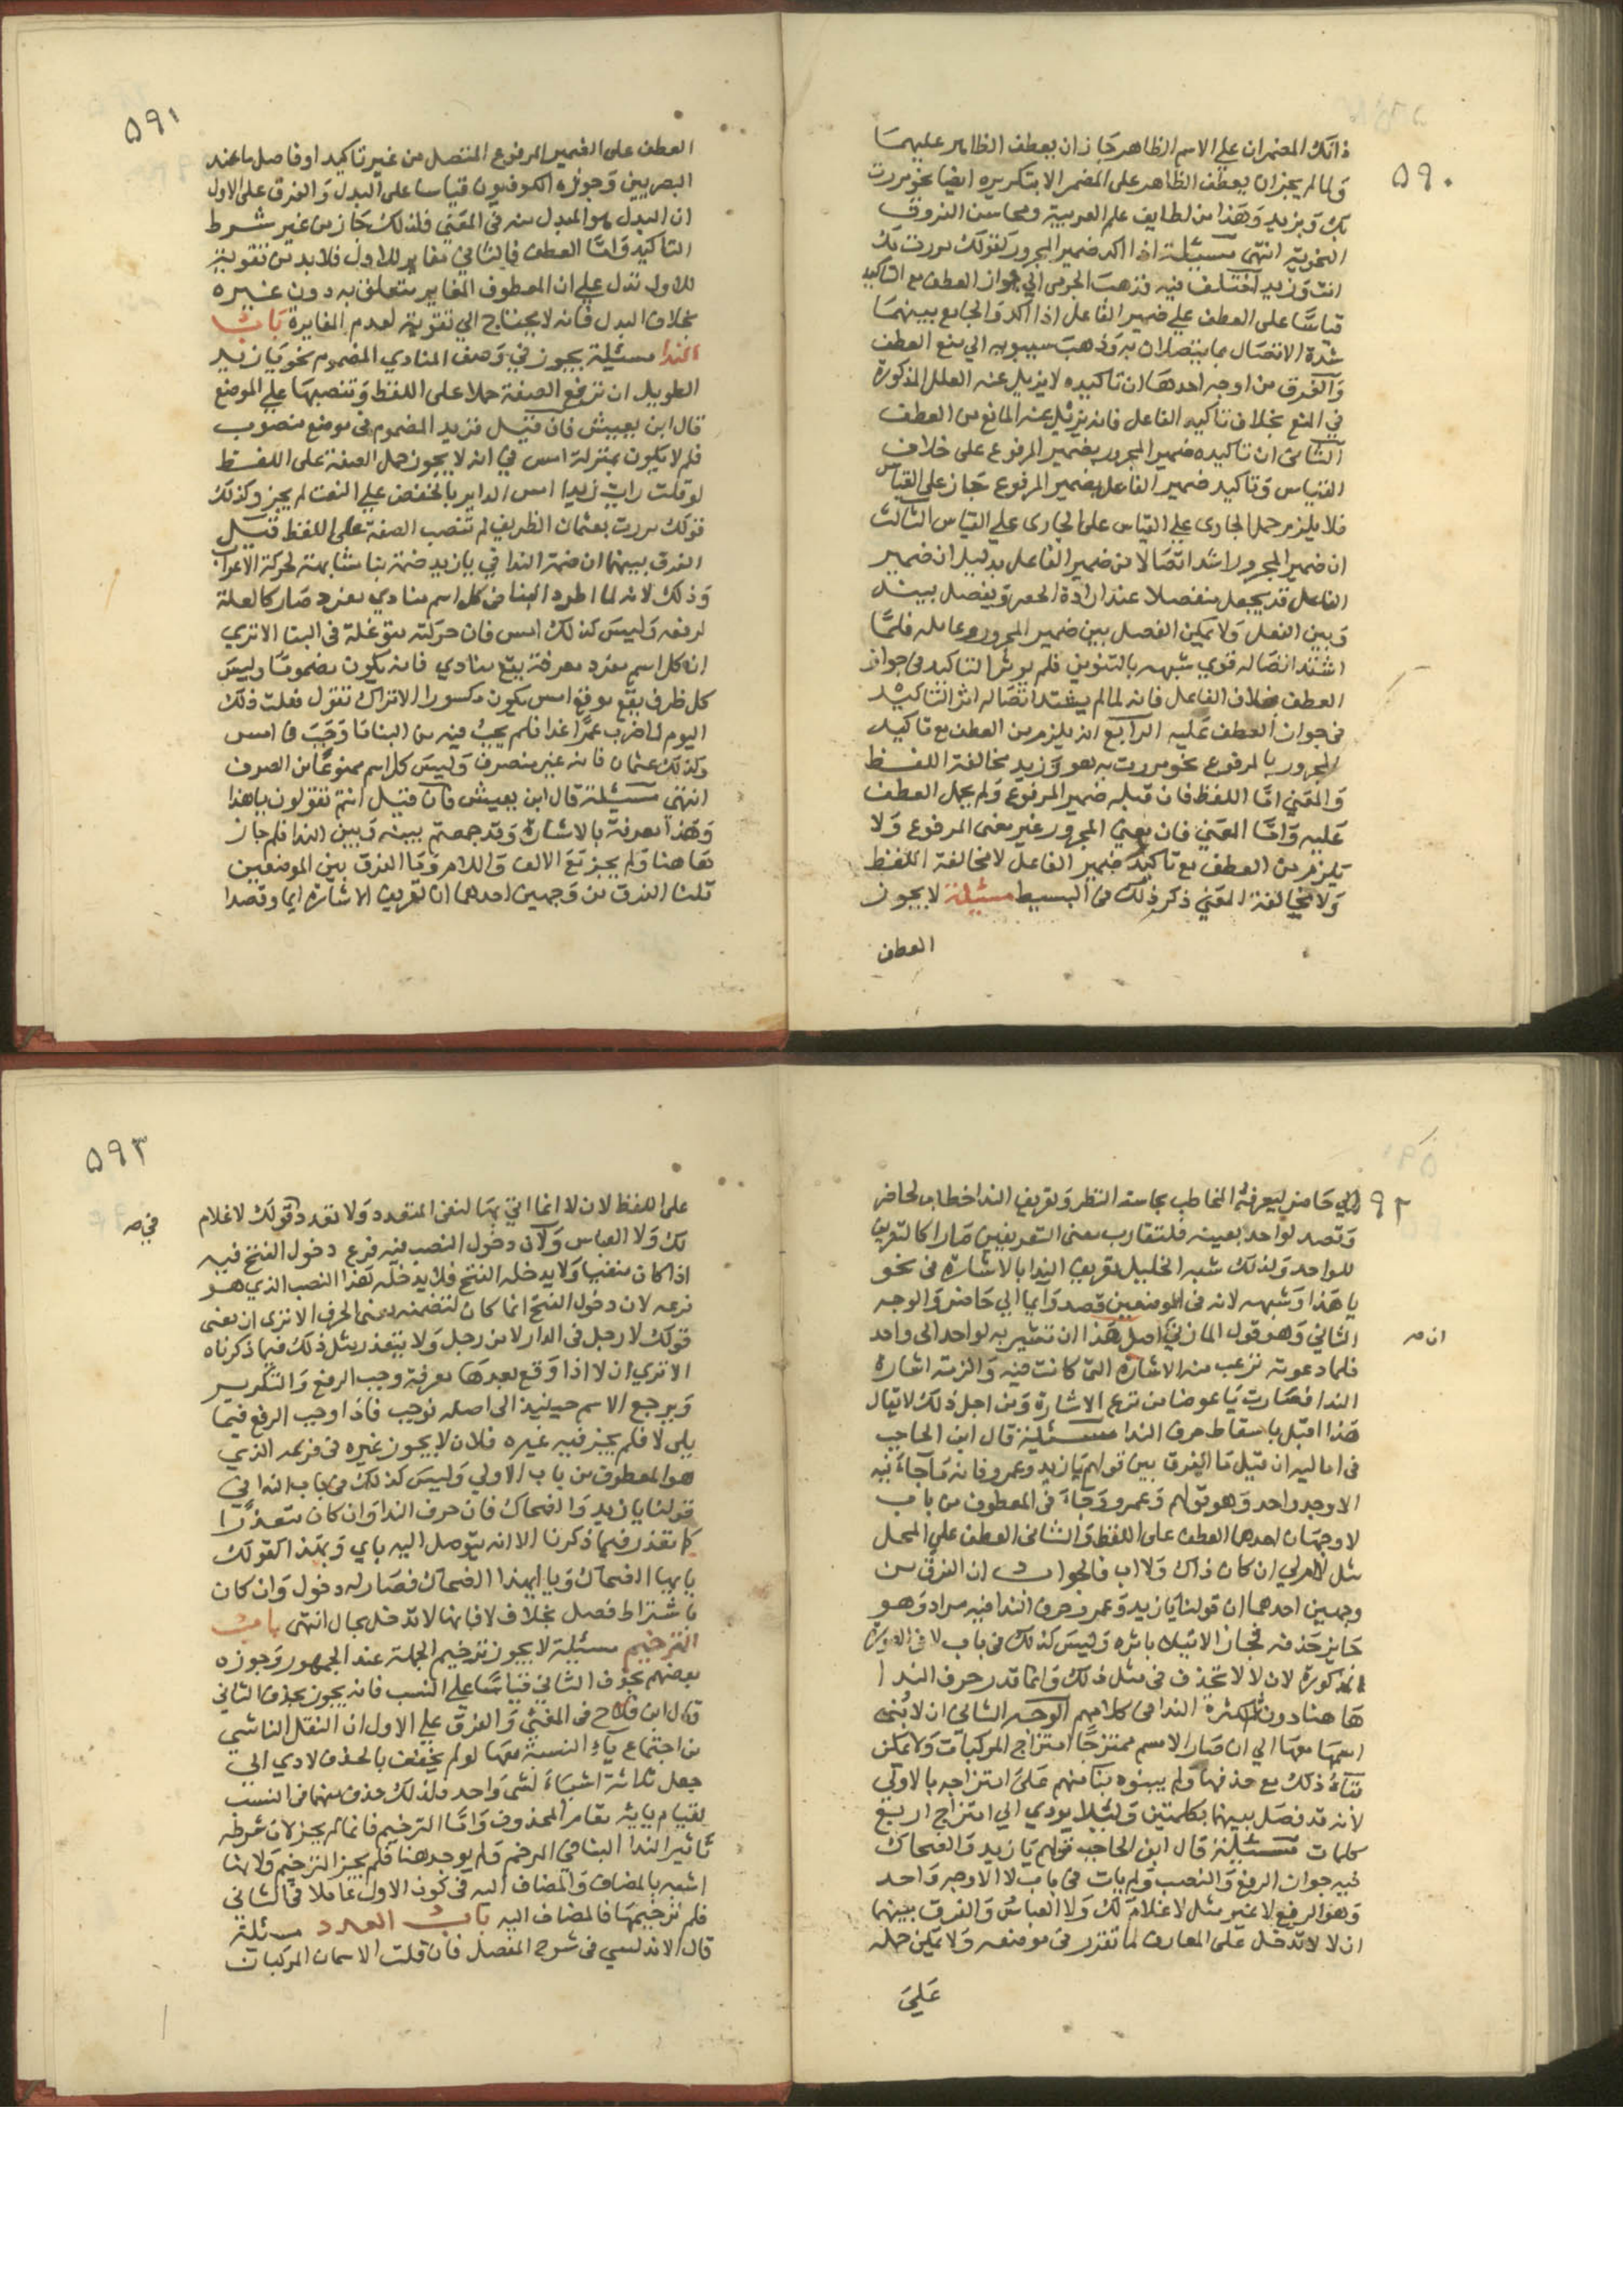 ٥٩٠
ذانك المضمران علي الاسم الظاهر جاز ان يعطف الظاهر عليهما
ولما لم يجز ان يعطف الظاهر على المضمر الا بتكريره ايضا نحو مررت
بك وبزيد وهذا من لطايف علم العربية ومحاسن الفروق
النحوية انتهى مسئلة اذا اكد ضمير المجرور كقولك مررت بك
انت وزيد اختلف فيه فذهب الجرمى الي جواز العطف مع التاكيد
قياسا على العطف علي ضمير الفاعل اذا اكد والجامع بينهما
شدة الاتصال بما يتصلان به وذهب سيبويه الي منع العطف
والفرق من اوجه احدها ان تاكيده لا يزيل عنه العلل المذكورة
في المنع بخلاف تاكيد الفاعل فانه يزيل عنه المانع من العطف
الثاني ان تاكيده ضمير المجرور بضمير المرفوع على خلاف
القياس وتاكيد ضمير الفاعل بضمير المرفوع جاز على القياس
فلا يلزم حمل الجاري علي القياس على الجاري علي القياس الثالث
ان ضمير المجرور اشد اتصالا من ضمير الفاعل بدليل ان ضمير
الفاعل قد يجعل منفصلا عند ارادة الحصر ويفصل بينه
وبين الفعل ولا يمكن الفصل بين ضمير المجرور وعامله فلما
اشتد اتصاله قوي شبهه بالتنوين فلم يوثر التاكيد في جواز
العطف بخلاف الفاعل فانه لما لم يشتد اتصاله اثر التاكيد
في جواز العطف عليه الرابع انه يلزم من العطف مع تاكيد
المجرور بالمرفوع نحو مررت به هو وزيد مخالفة اللفظ
والمعني اما اللفظ فان قبله ضمير المرفوع ولم يحمل العطف
عليه واما المعني فان معني المجرور غير معنى المرفوع ولا
يلزم من العطف مع تاكيد ضمير الفاعل لا مخالفة اللفظ
ولا مخالفة المعني ذكر ذلك في البسيط مسئلة لا يجوز
العطف
٥٩١
العطف على الضمير المرفوع المتصل من غير تاكيد او فاصل ما عند
البصريين وجوزه الكوفيون قياسا على البدل والفرق على الاول
ان البدل هو المبدل منه في المعني فلذلك جاز من غير شرط
التاكيد واما العطف فالثاني مغاير للاول فلا بد من تقوية
للاول تدل علي ان المعطوف المغاير متعلق به دون غيره
بخلاف البدل فانه لا يحتاج الي تقوية لعدم المغايرة باب
الندا مسئلة يجوز في وصف المنادي المضموم نحو يا زيد
الطويل ان ترفع الصفة حملا على اللفظ وتنصبها علي الموضع
قال ابن يعيش فان قيل فزيد المضموم في موضع منصوب
فلم لا يكون بمنزلة امس في انه لا يجوز حمل الصفة على اللفظ
لو قلت رايت زيدا امس الدابر بالخفض علي النعت لم يجز وكذلك
قولك مررت بعثمان الظريف لم تنصب الصفة على اللفظ قيل
الفرق بينهما ان ضمة الندا في يا زيد ضمة بنا مشابهة لحركة الاعراب
وذلك لانه لما اطرد البنا في كل اسم منادي مفرد صار كالعلة
لرفعه وليس كذلك امس فان حركته متوغلة في البنا الا تري
ان كل اسم مفرد معرفة يقع منادي فانه يكون مضموما وليس
كل ظرف يقع موقع امس يكون مكسورا الا تراك تقول فعلت ذلك
اليوم واضرب عمرا غدا فلم يجب فيه من البنا ما وجب في امس
وكذلك عثمان فانه غير منصرف وليس كل اسم ممنوعا من الصرف
انتهى مسئلة قال ابن يعيش فان قيل انتم تقولون يا هذا
وهذا معرفة بالاشارة وقد جمعتم بينه وبين الندا فلم جاز
هاهنا ولم يجز مع الالف واللام وما الفرق بين الموضعين
قلنا الفرق من وجهين احدهما ان تعريف الاشارة ايما وقصدا
٩٢
الي حاضر ليعرفه المخاطب بحاسة النظر وتعريف الندا خطاب لحاضر
وقصد لواحد بعينه فلتقارب معنى التعريفين صارا كالتعريف
للواحد ولذلك شبه الخليل تعريف الندا بالاشارة في نحو
يا هذا وشبهه لانه في الموضعين قصد وايما الي حاضر والوجه
الثاني وهو قول المازني اصل هذا ان تشير به لواحد الى واحد
ان صـ
فلما دعوته نزعت منه الاشارة التي كانت فيه والزمته اشارة
الندا فصارت يا عوضا من نزع الاشارة ومن اجل ذلك لا يقال
هذا اقبل باسقاط حرف الندا مسئلة قال ابن الحاجب
في اماليه ان قيل ما الفرق بين قولهم يا زيد وعمرو فانه ما جا فيه
الا وجه واحد وهو قولهم وعمرو وجا في المعطوف من باب
لا وجهان احدهما العطف على اللفظ والثاني العطف علي المحل
مثل لا ام لي ان كان ذاك ولا اب فالجواب ان الفرق من
وجهين احدهما ان قولنا يا زيد وعمرو حرف الندا فيه مراد وهو
جايز حذفه فجاز الاتيان باثره وليس كذلك في باب لا في الصورة
المذكورة لان لا لا تحذف في مثل ذلك وانما قدر حرف الندا
هاهنا دون لا لكثرة الندا في كلامهم الوجه الثاني ان لا بني
اسمها معها الي ان صار الاسم ممتزجا امتزاج المركبات ولا يمكن
بقاء ذلك مع حذفها ولم يبنوه بنا منهم على امتزاجه بالاولي
لانه قد فصل بينهما بكلمتين ولئلا يودي الي امتزاج اربع
كلمات مسئلة قال ابن الحاجب قولهم يا زيد والضحاك
فيه جواز الرفع والنصب ولم يات في باب لا الا وجه واحد
وهو الرفع لا غير مثل لا غلام لك ولا العباس والفرق بينهما
ان لا لا تدخل على المعارف لما تقرر في موضعه ولا يمكن حمله
علي
٥٩٣
على اللفظ لان لا انما اتي بها لنفي المتعدد ولا تعدد قولك لا غلام
في صـ
لك ولا العباس ولان دخول النصب فيه فرع دخول الفتح فيه
اذا كان منفيا ولا يدخله الفتح فلا يدخله هذا النصب الذي هو
فرعه لان دخول الفتح انما كان لتضمنه معنى الحرف الا تري ان معنى
قولك لا رجل في الدار لا من رجل ولا يتقدر مثل ذلك فيما ذكرناه
الا تري ان لا اذا وقع بعدها معرفة وجب الرفع والتكرير
ويرجع الاسم حينيذ الى اصله فوجب فاذا وجب الرفع فيما
يلى لا فلم يجز فيه غيره فلان لا يجوز غيره في فرعه الذي
هو المعطوف من باب الاولي وليس كذلك في باب الندا في
قولنا يا زيد والضحاك فان حرف الندا وان كان متعذرا
كما تعذر فيما ذكرنا الا انه يتوصل اليه باي وبهذا كقولك
يا ايها الضحاك ويا ايهذا الضحاك فصار له دخول وان كان
باشتراط فصل بخلاف لا فانها لا تدخل بحال انتهى باب
الترخيم مسئلة لا يجوز ترخيم الجملة عند الجمهور وجوزه
بعضهم بحذف الثاني قياسا علي النسب فانه يجوز بحذف الثاني
قال ابن فلاح في المغني والفرق علي الاول ان الثقل الناشي
من اجتماع ياء النسبة معها لو لم يخفف بالحذف لادي الي
جعل ثلاثة اشياء لشي واحد فلذلك حذف منهما في النسب
لقيام يايه مقام المحذوف واما الترخيم فانما لم يجز لان شرطه
تاثير الندا البنا في المرخم ولم يوجد هنا فلم يجز الترخيم ولانها
اشبه بالمضاف والمضاف اليه في كون الاول عاملا في الثاني
فلم ترخيمها فالمضاف اليه باب العدد مسئلة
قال الاندلسي في شرح المفصل فان قلت الاسمان المركبان